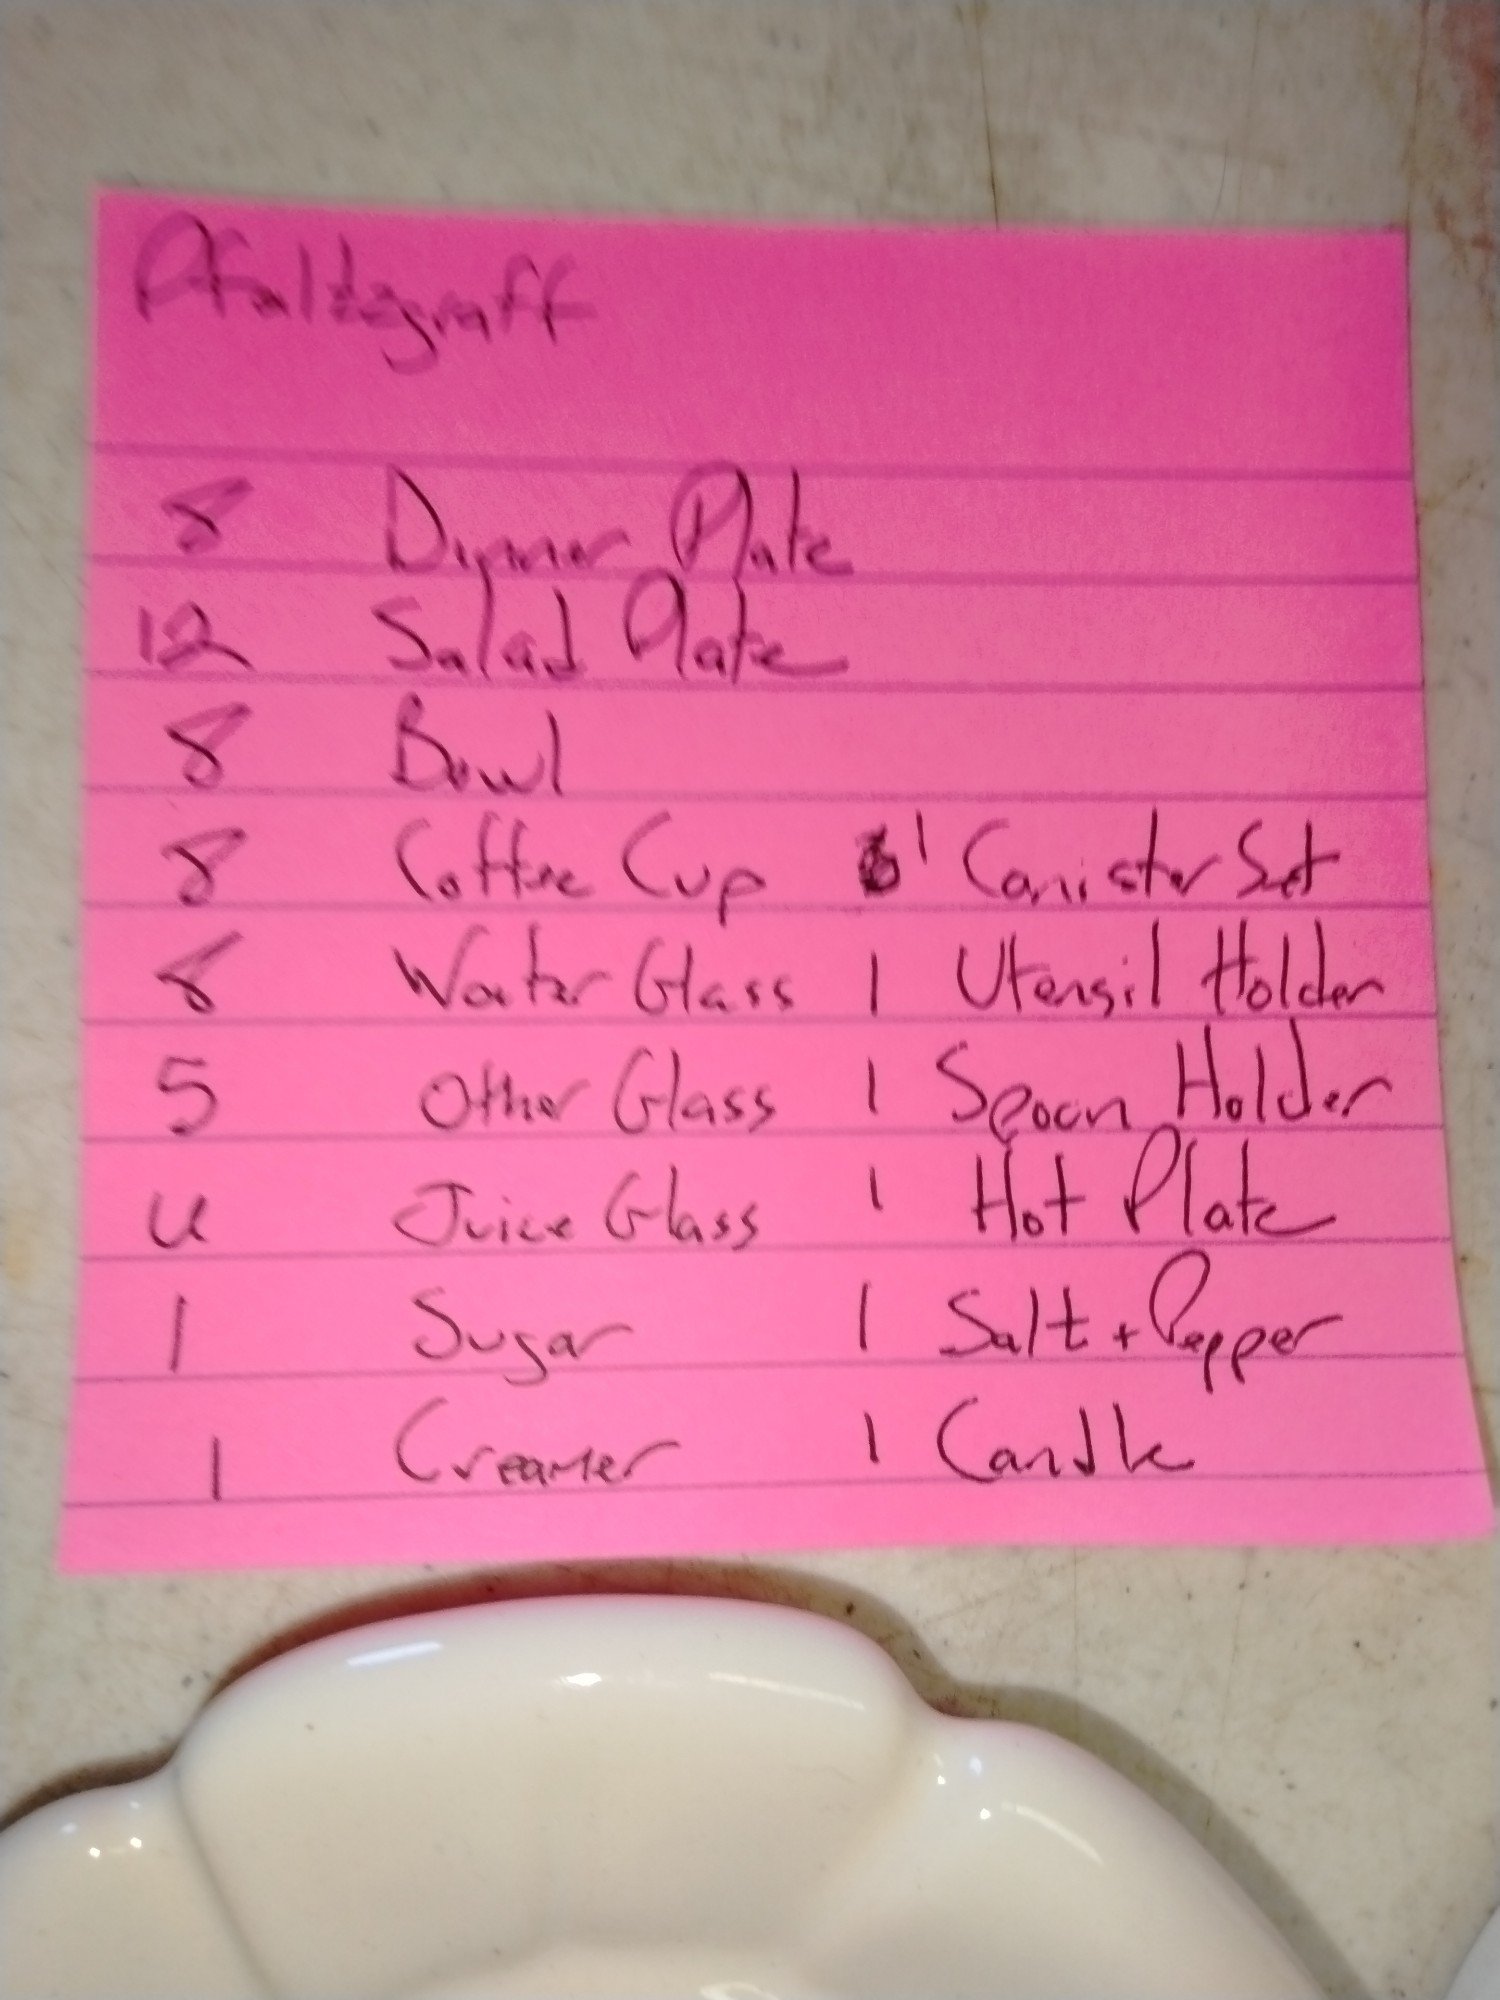 Pfaltzgraff
8 Dinner Plate
12 Salad Plate
8 Bowl
8 Coffee Cup 1 Canister Set
8 Water Glass 1 Utensil Holder
5 Other Glass 1 Spoon Holder
4 Juice Glass 1 Hot Plate
1 Sugar 1 Salt + Pepper
1 Creamer 1 Candle